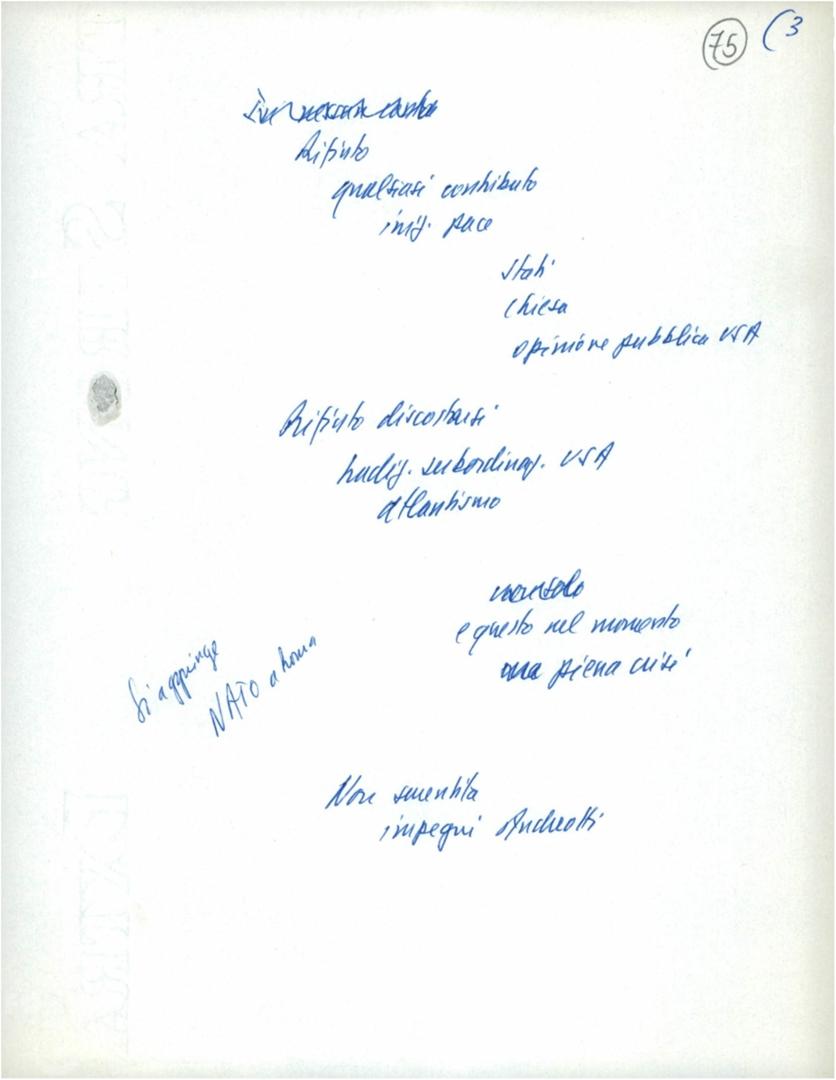 75 (3
Rifiuto
qualsiasi contributo
iniz. pace
Stati
Chiesa
opinione pubblica USA
Rifiuto discostarsi
tradiz. subordinaz. USA
atlantismo
e questo nel momento
piena crisi
Si aggiunge
NATO a Roma
Non smentita
impegni Andreotti
EXTRA